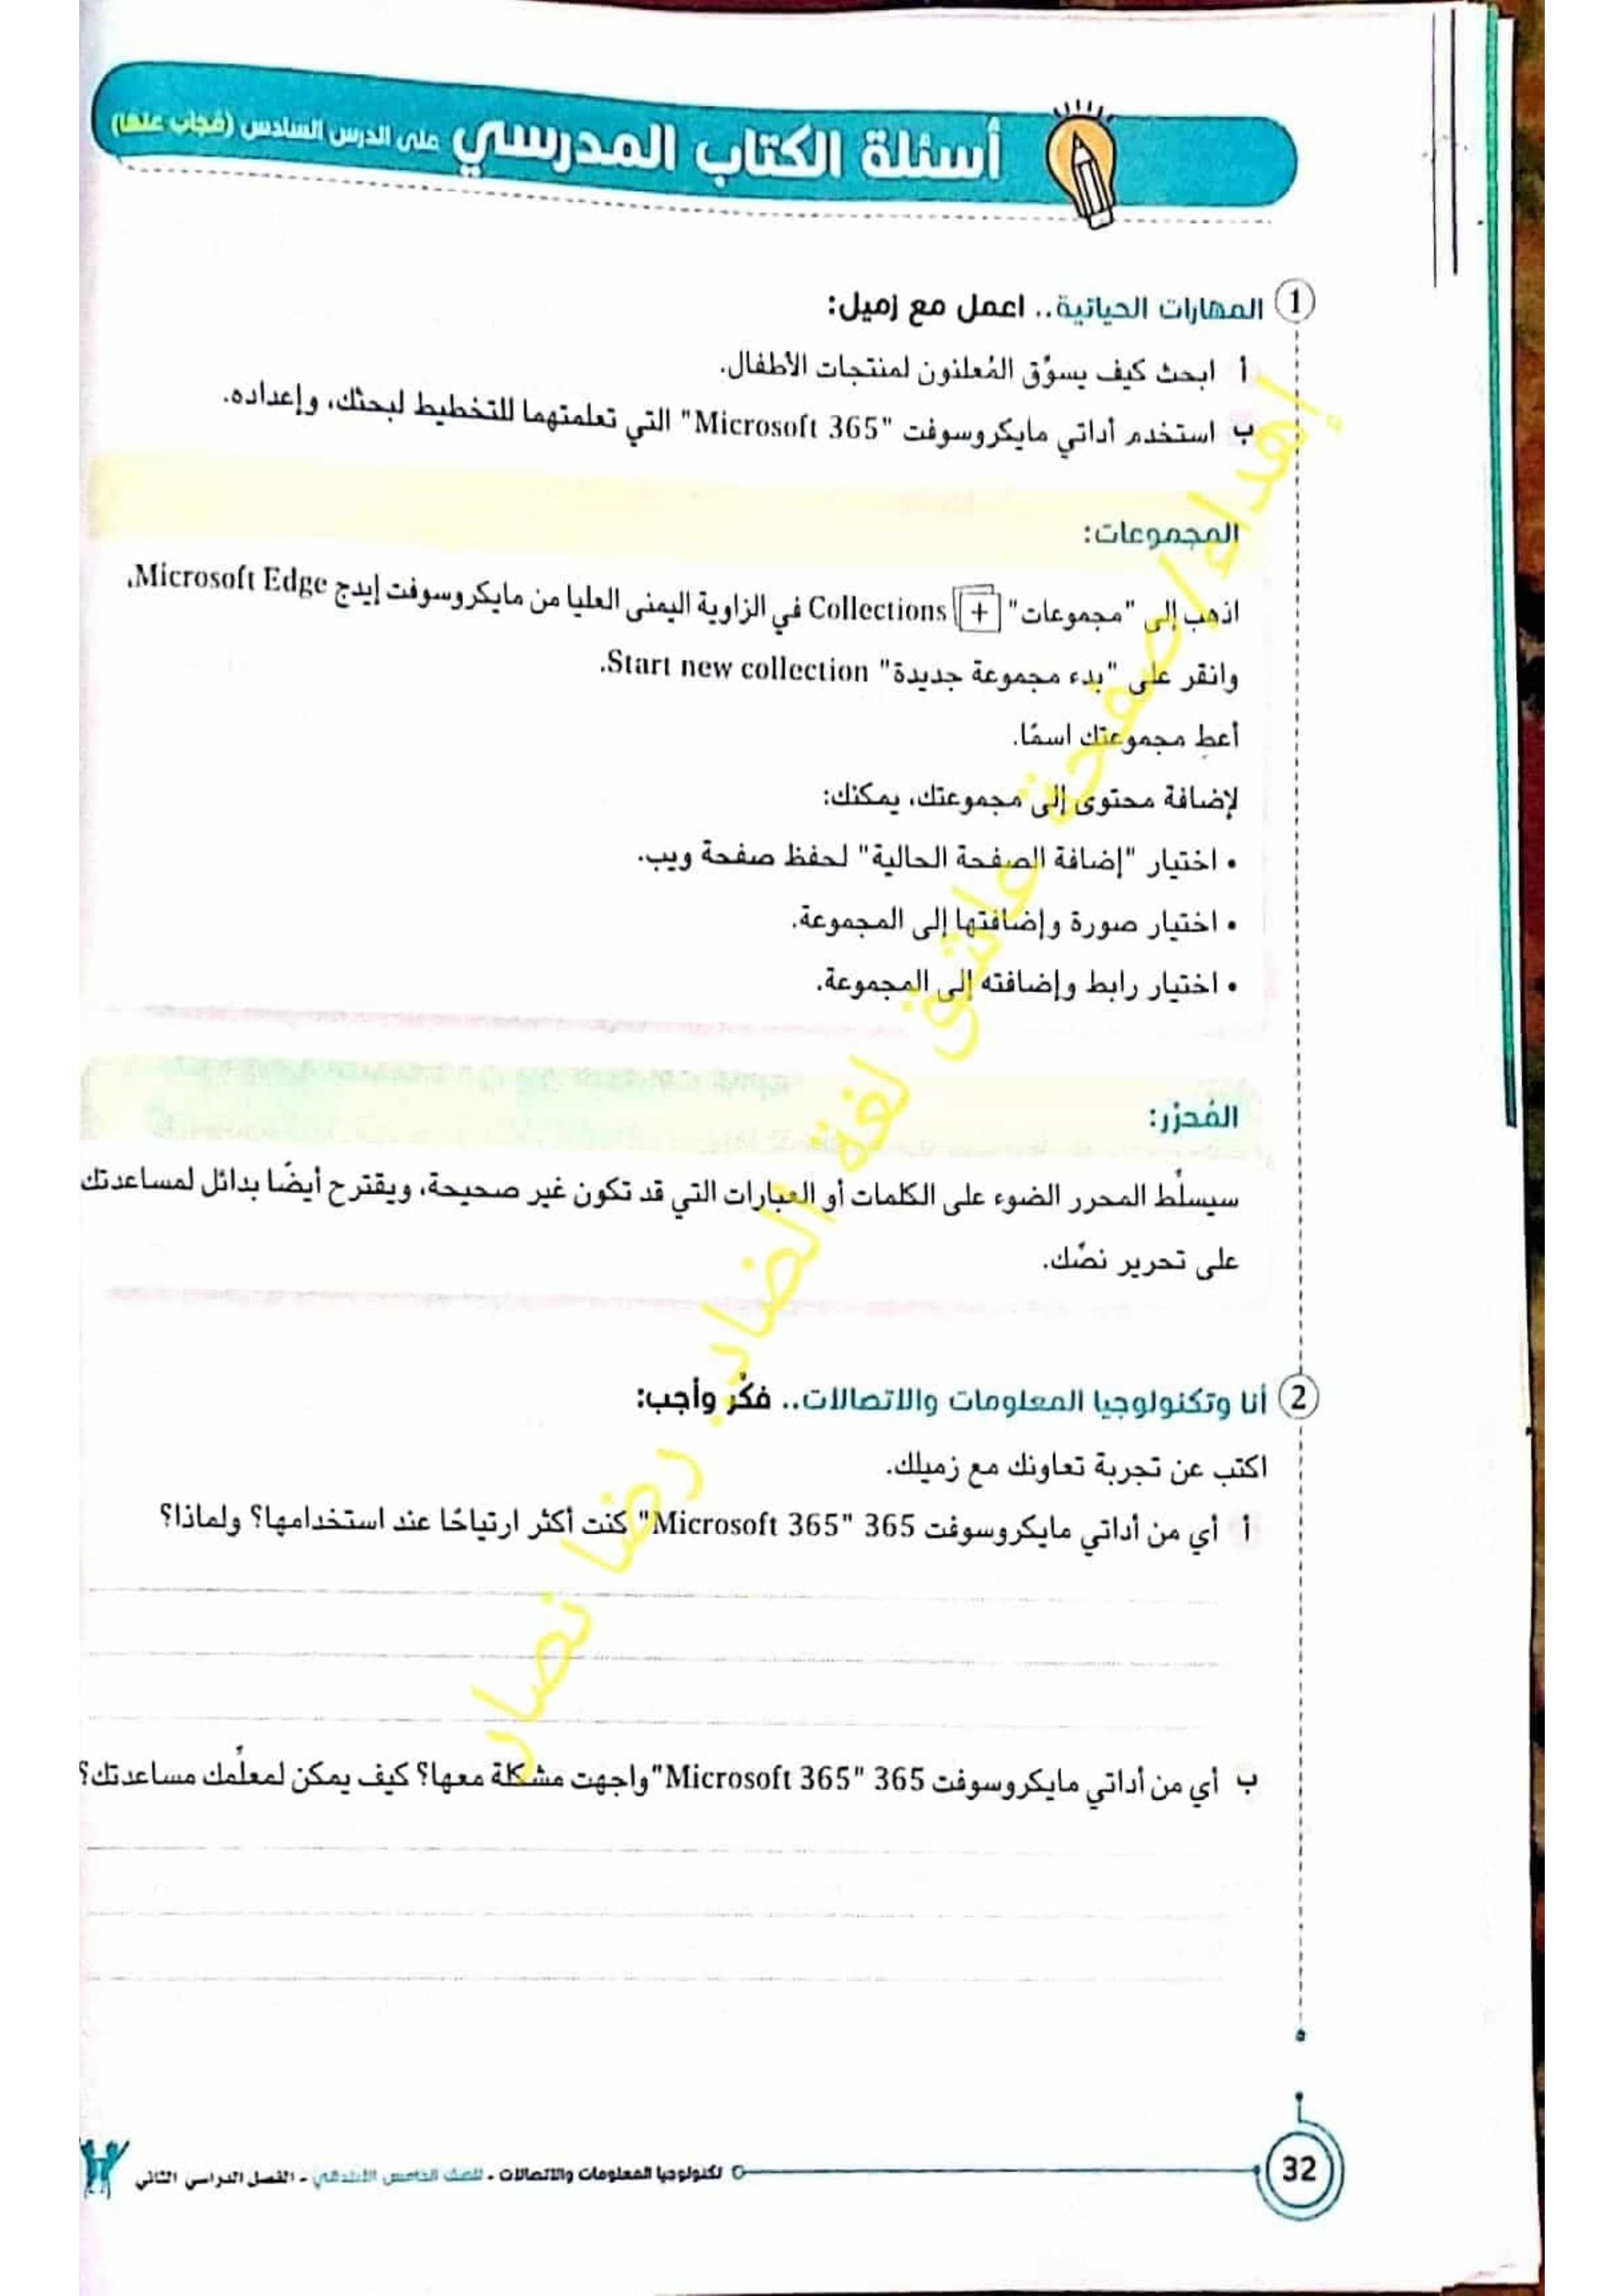 أسئلة الكتاب المدرسي على الدرس السادس (مُجاب عنها)
1 المهارات الحياتية.. اعمل مع زميل:
أ ابحث كيف يسوِّق المُعلنون لمنتجات الأطفال.
ب استخدم أداتي مايكروسوفت "Microsoft 365" التي تعلمتهما للتخطيط لبحثك، وإعداده.
المجموعات:
اذهب إلى "مجموعات" Collections في الزاوية اليمنى العليا من مايكروسوفت إيدج Microsoft Edge،
وانقر على "بدء مجموعة جديدة" Start new collection.
أعطِ مجموعتك اسمًا.
لإضافة محتوى إلى مجموعتك، يمكنك:
• اختيار "إضافة الصفحة الحالية" لحفظ صفحة ويب.
• اختيار صورة وإضافتها إلى المجموعة.
• اختيار رابط وإضافته إلى المجموعة.
المُحرِّر:
سيسلِّط المحرر الضوء على الكلمات أو العبارات التي قد تكون غير صحيحة، ويقترح أيضًا بدائل لمساعدتك
على تحرير نصِّك.
2 أنا وتكنولوجيا المعلومات والاتصالات.. فكِّر وأجب:
اكتب عن تجربة تعاونك مع زميلك.
أ أي من أداتي مايكروسوفت 365 "Microsoft 365" كنت أكثر ارتياحًا عند استخدامها؟ ولماذا؟
ب أي من أداتي مايكروسوفت 365 "Microsoft 365" واجهت مشكلة معها؟ كيف يمكن لمعلِّمك مساعدتك؟
32 تكنولوجيا المعلومات والاتصالات - للصف الخامس الابتدائي - الفصل الدراسي الثاني
إهداء/صفحة عاشق لغة الضاد.. رضا نصار